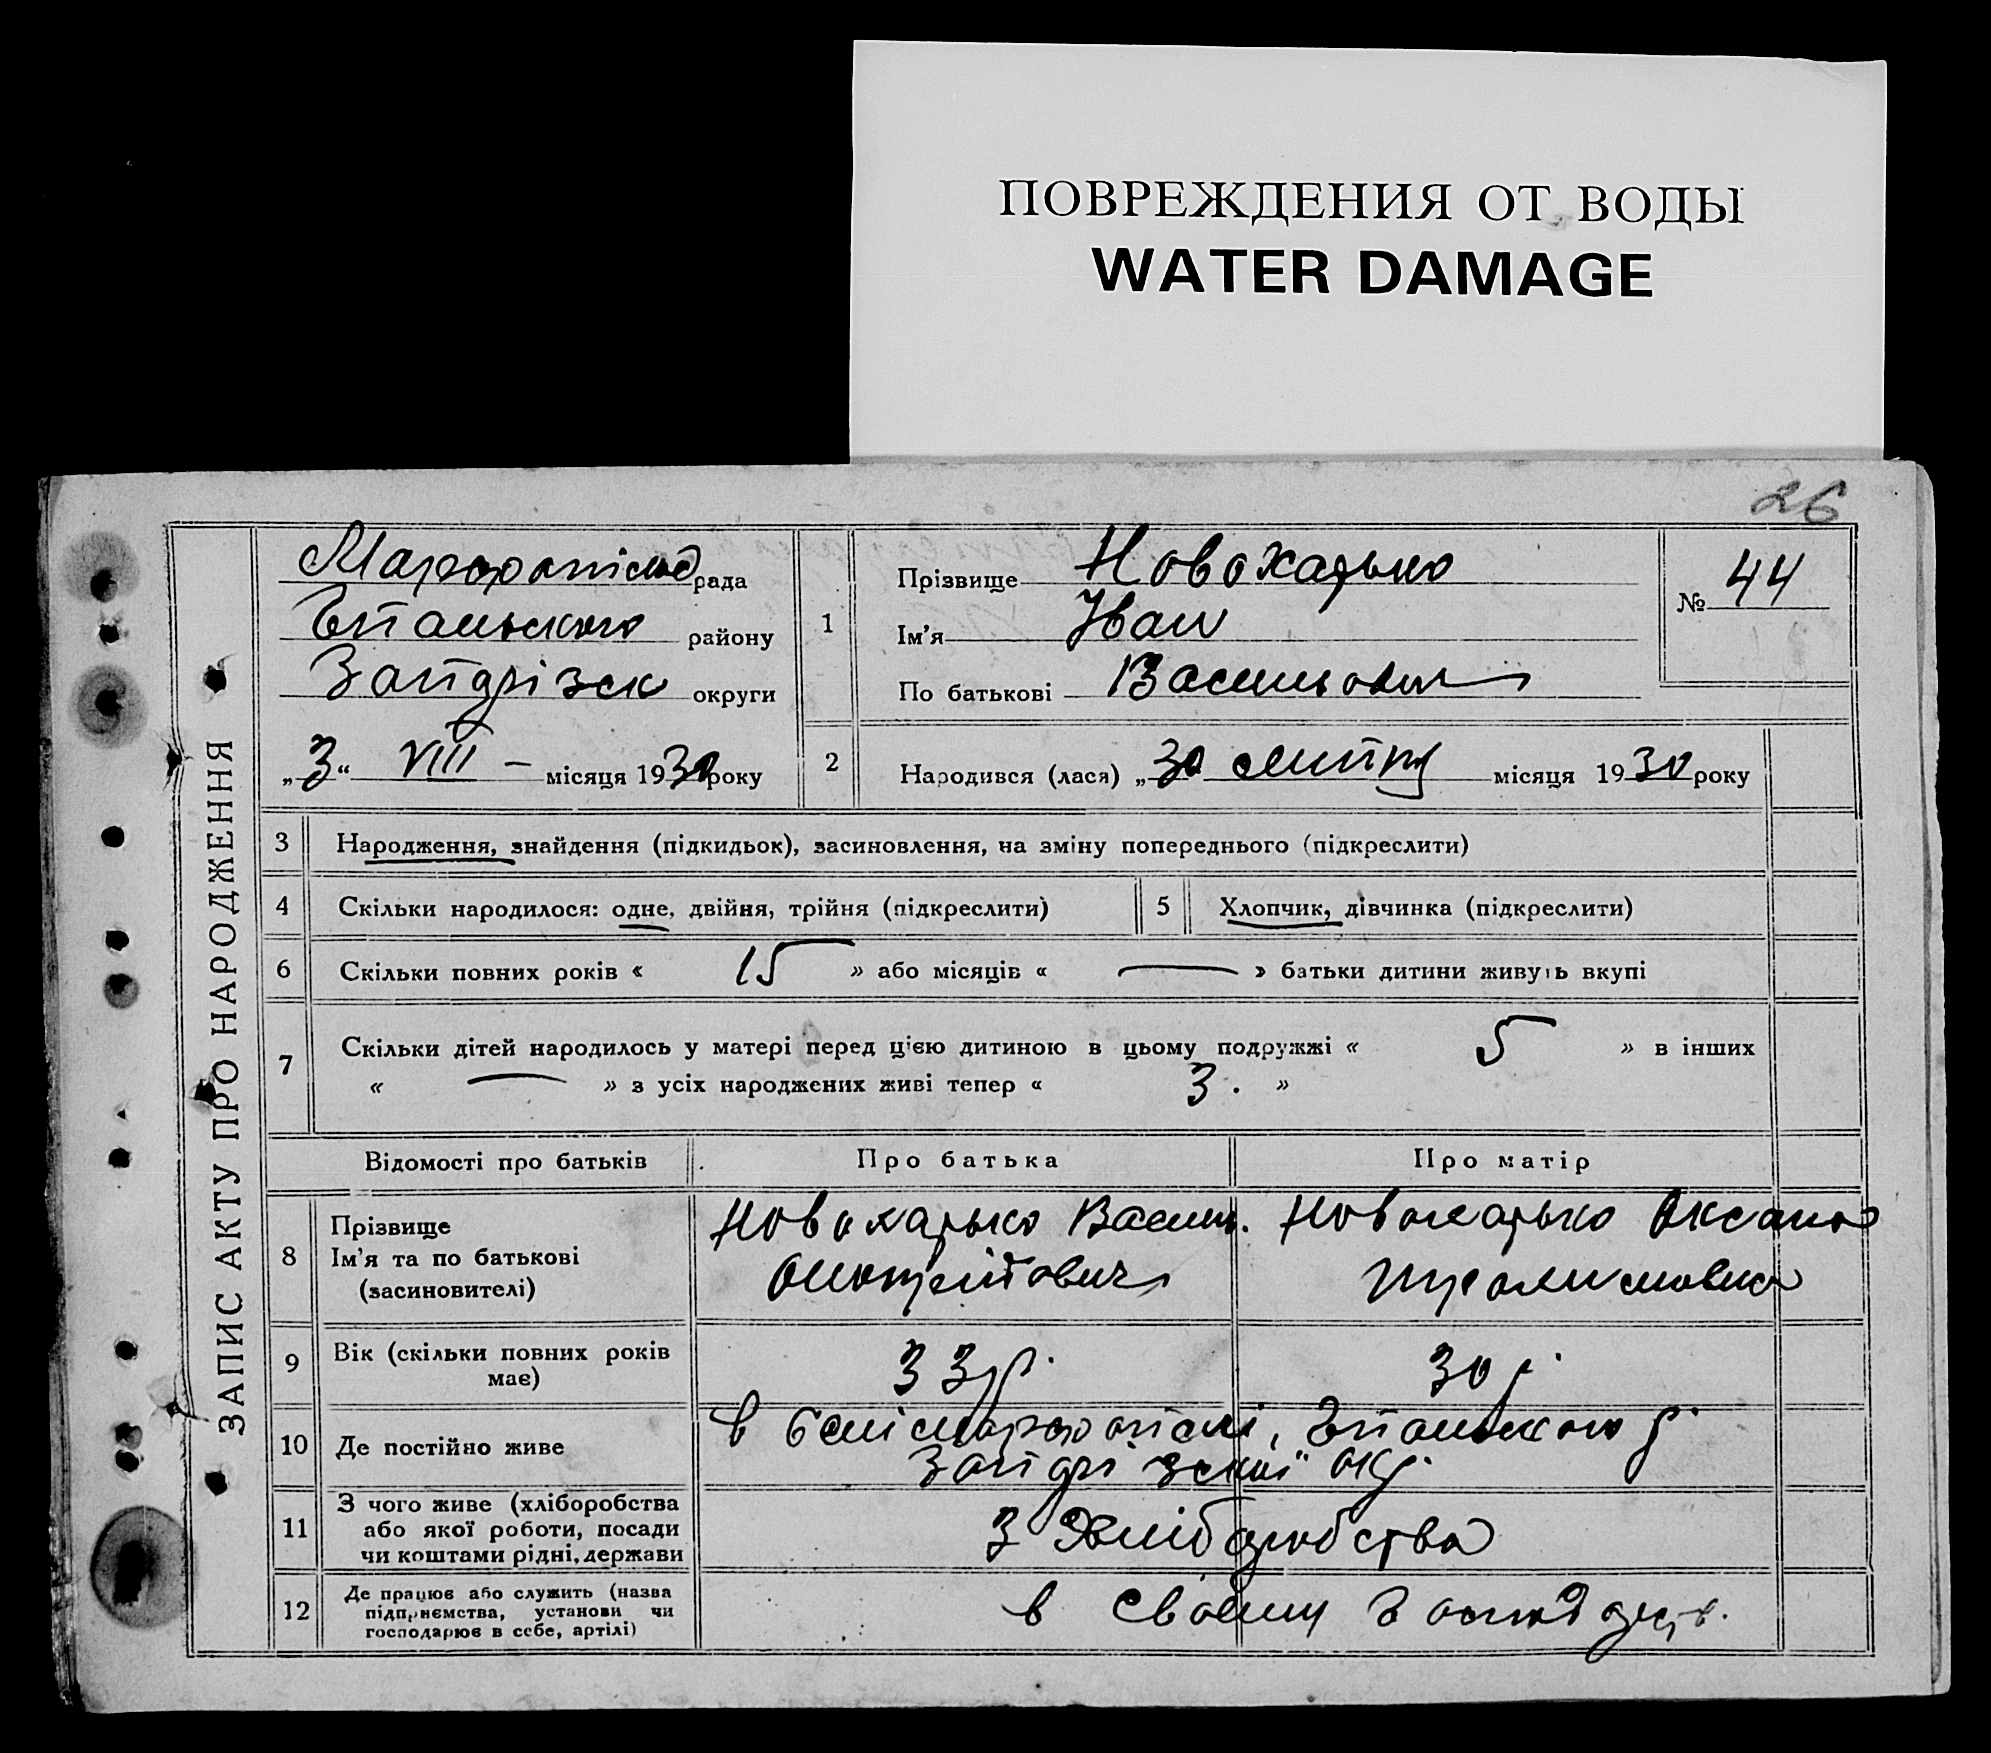 ПОВРЕЖДЕНИЯ ОТ ВОДЫ
WATER DAMAGE
26
ЗАПИС АКТУ ПРО НАРОДЖЕННЯ
рада
району
Запорізьк округи
„3“ VIII — місяця 1930 року
1
Прізвище Новохатько
Ім’я Іван
По батькові Васильович
№ 44
2 Народився (лася) „30 липня місяця 1930 року
3 Народження, знайдення (підкидьок), засиновлення, на зміну попереднього (підкреслити)
4 Скільки народилося: одне, двійня, трійня (підкреслити) 5 Хлопчик, дівчинка (підкреслити)
6 Скільки повних років « 15 » або місяців « — » батьки дитини живуть вкупі
7 Скільки дітей народилось у матері перед цією дитиною в цьому подружжі « 5 » в інших
« — » з усіх народжених живі тепер « 3. »
Відомості про батьків Про батька Про матір
8 Прізвище
Ім’я та по батькові
(засиновителі)
Новохатько Василь. Новохатько Оксана
9 Вік (скільки повних років
має)
33 р. 30 р.
10 Де постійно живе
в селі
Запорізької окр.
11 З чого живе (хліборобства
або якої роботи, посади
чи коштами рідні, держави
З Хліборобства
12 Де працює або служить (назва
підприємства, установи чи
господарює в себе, артілі)
в своєму господарств.